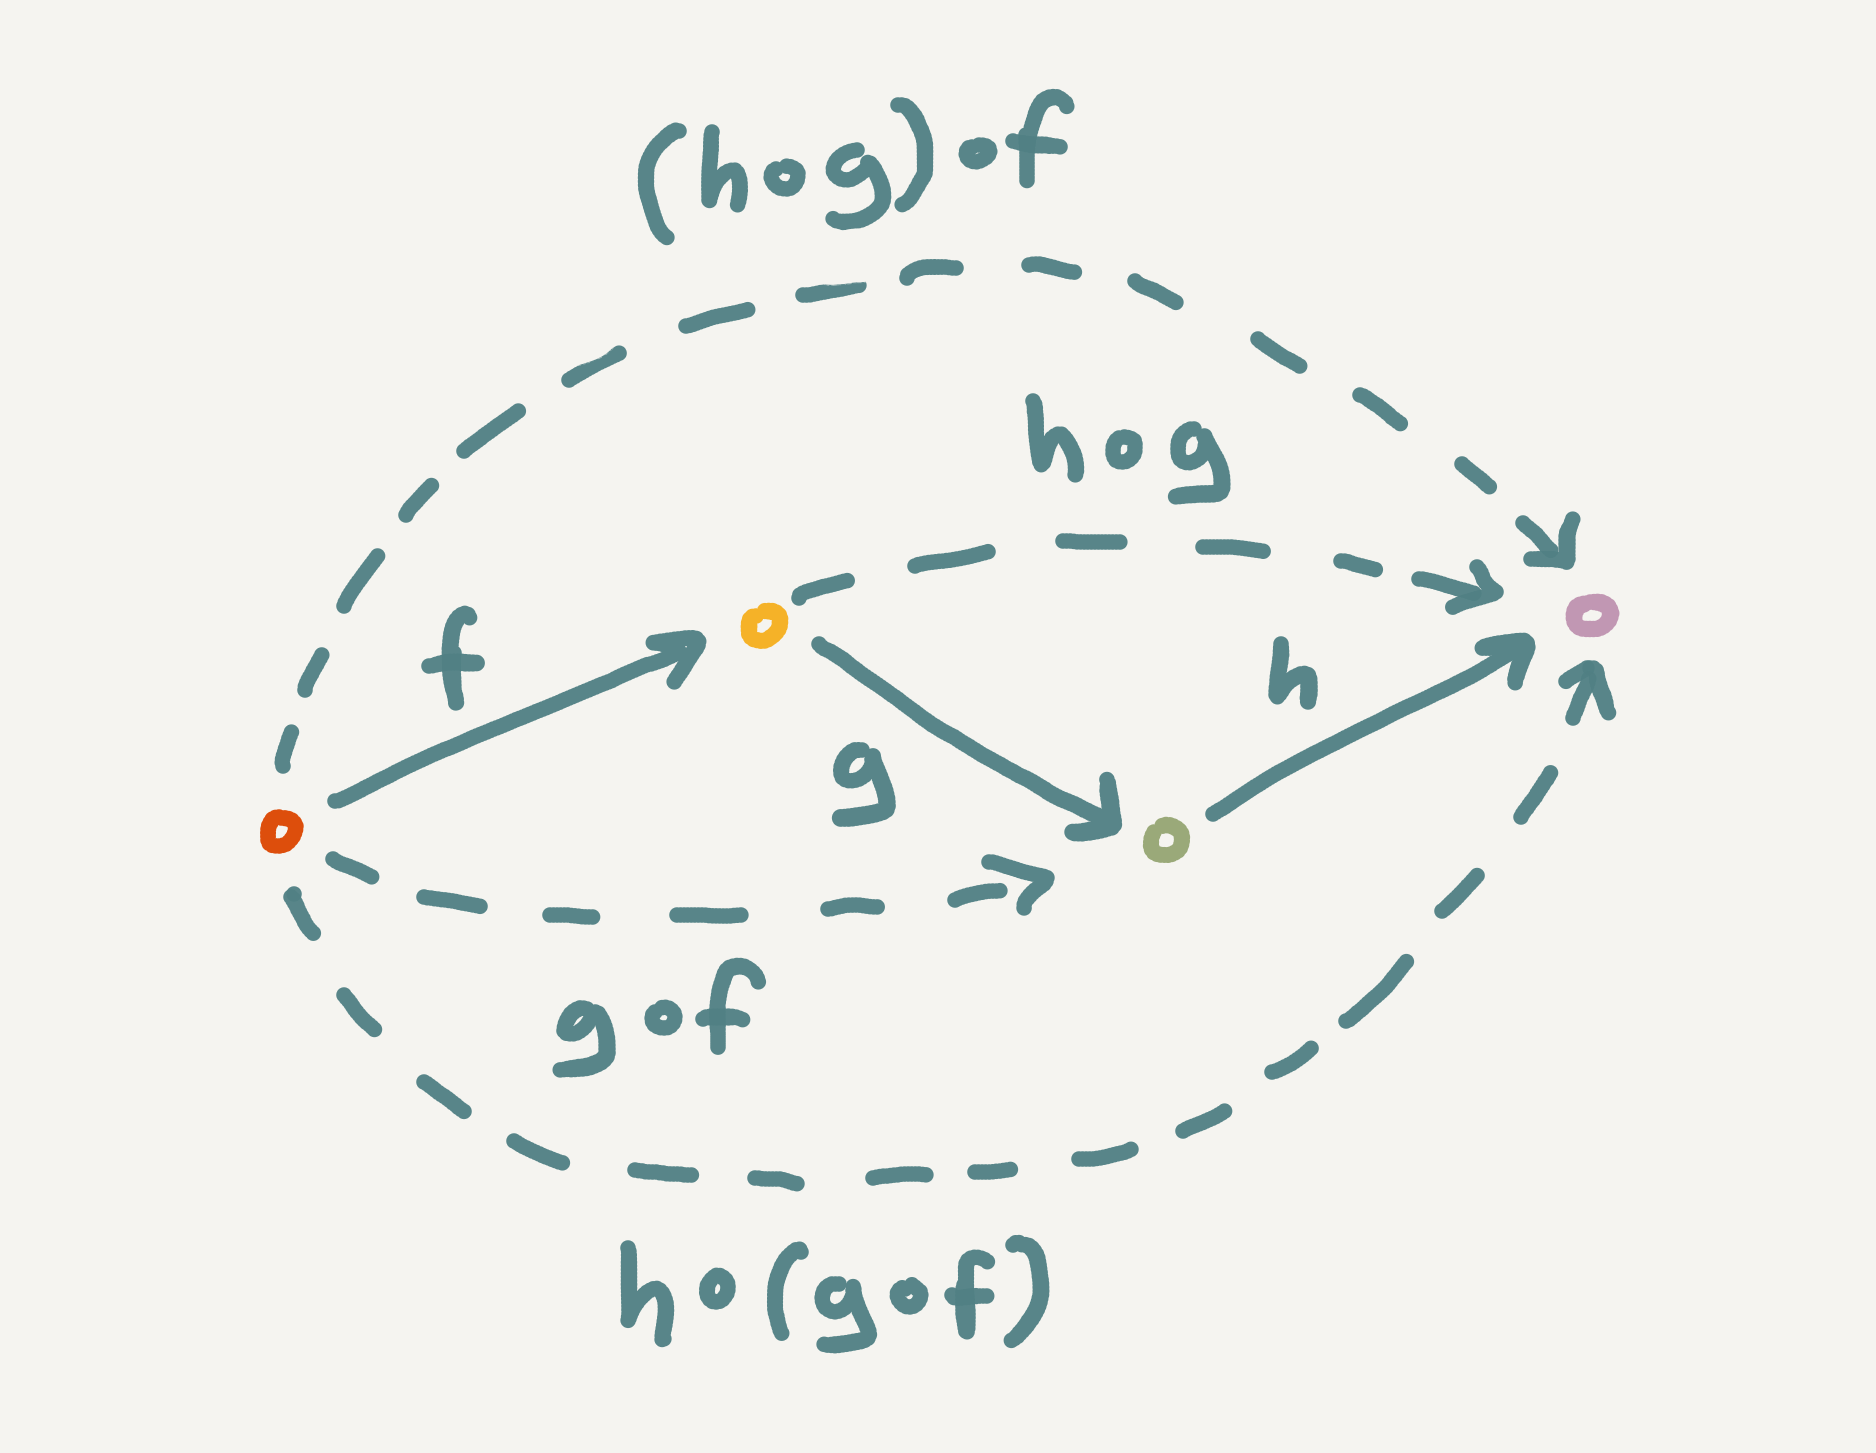 (h∘g)∘f
h∘g
f
h
g
g∘f
h∘(g∘f)